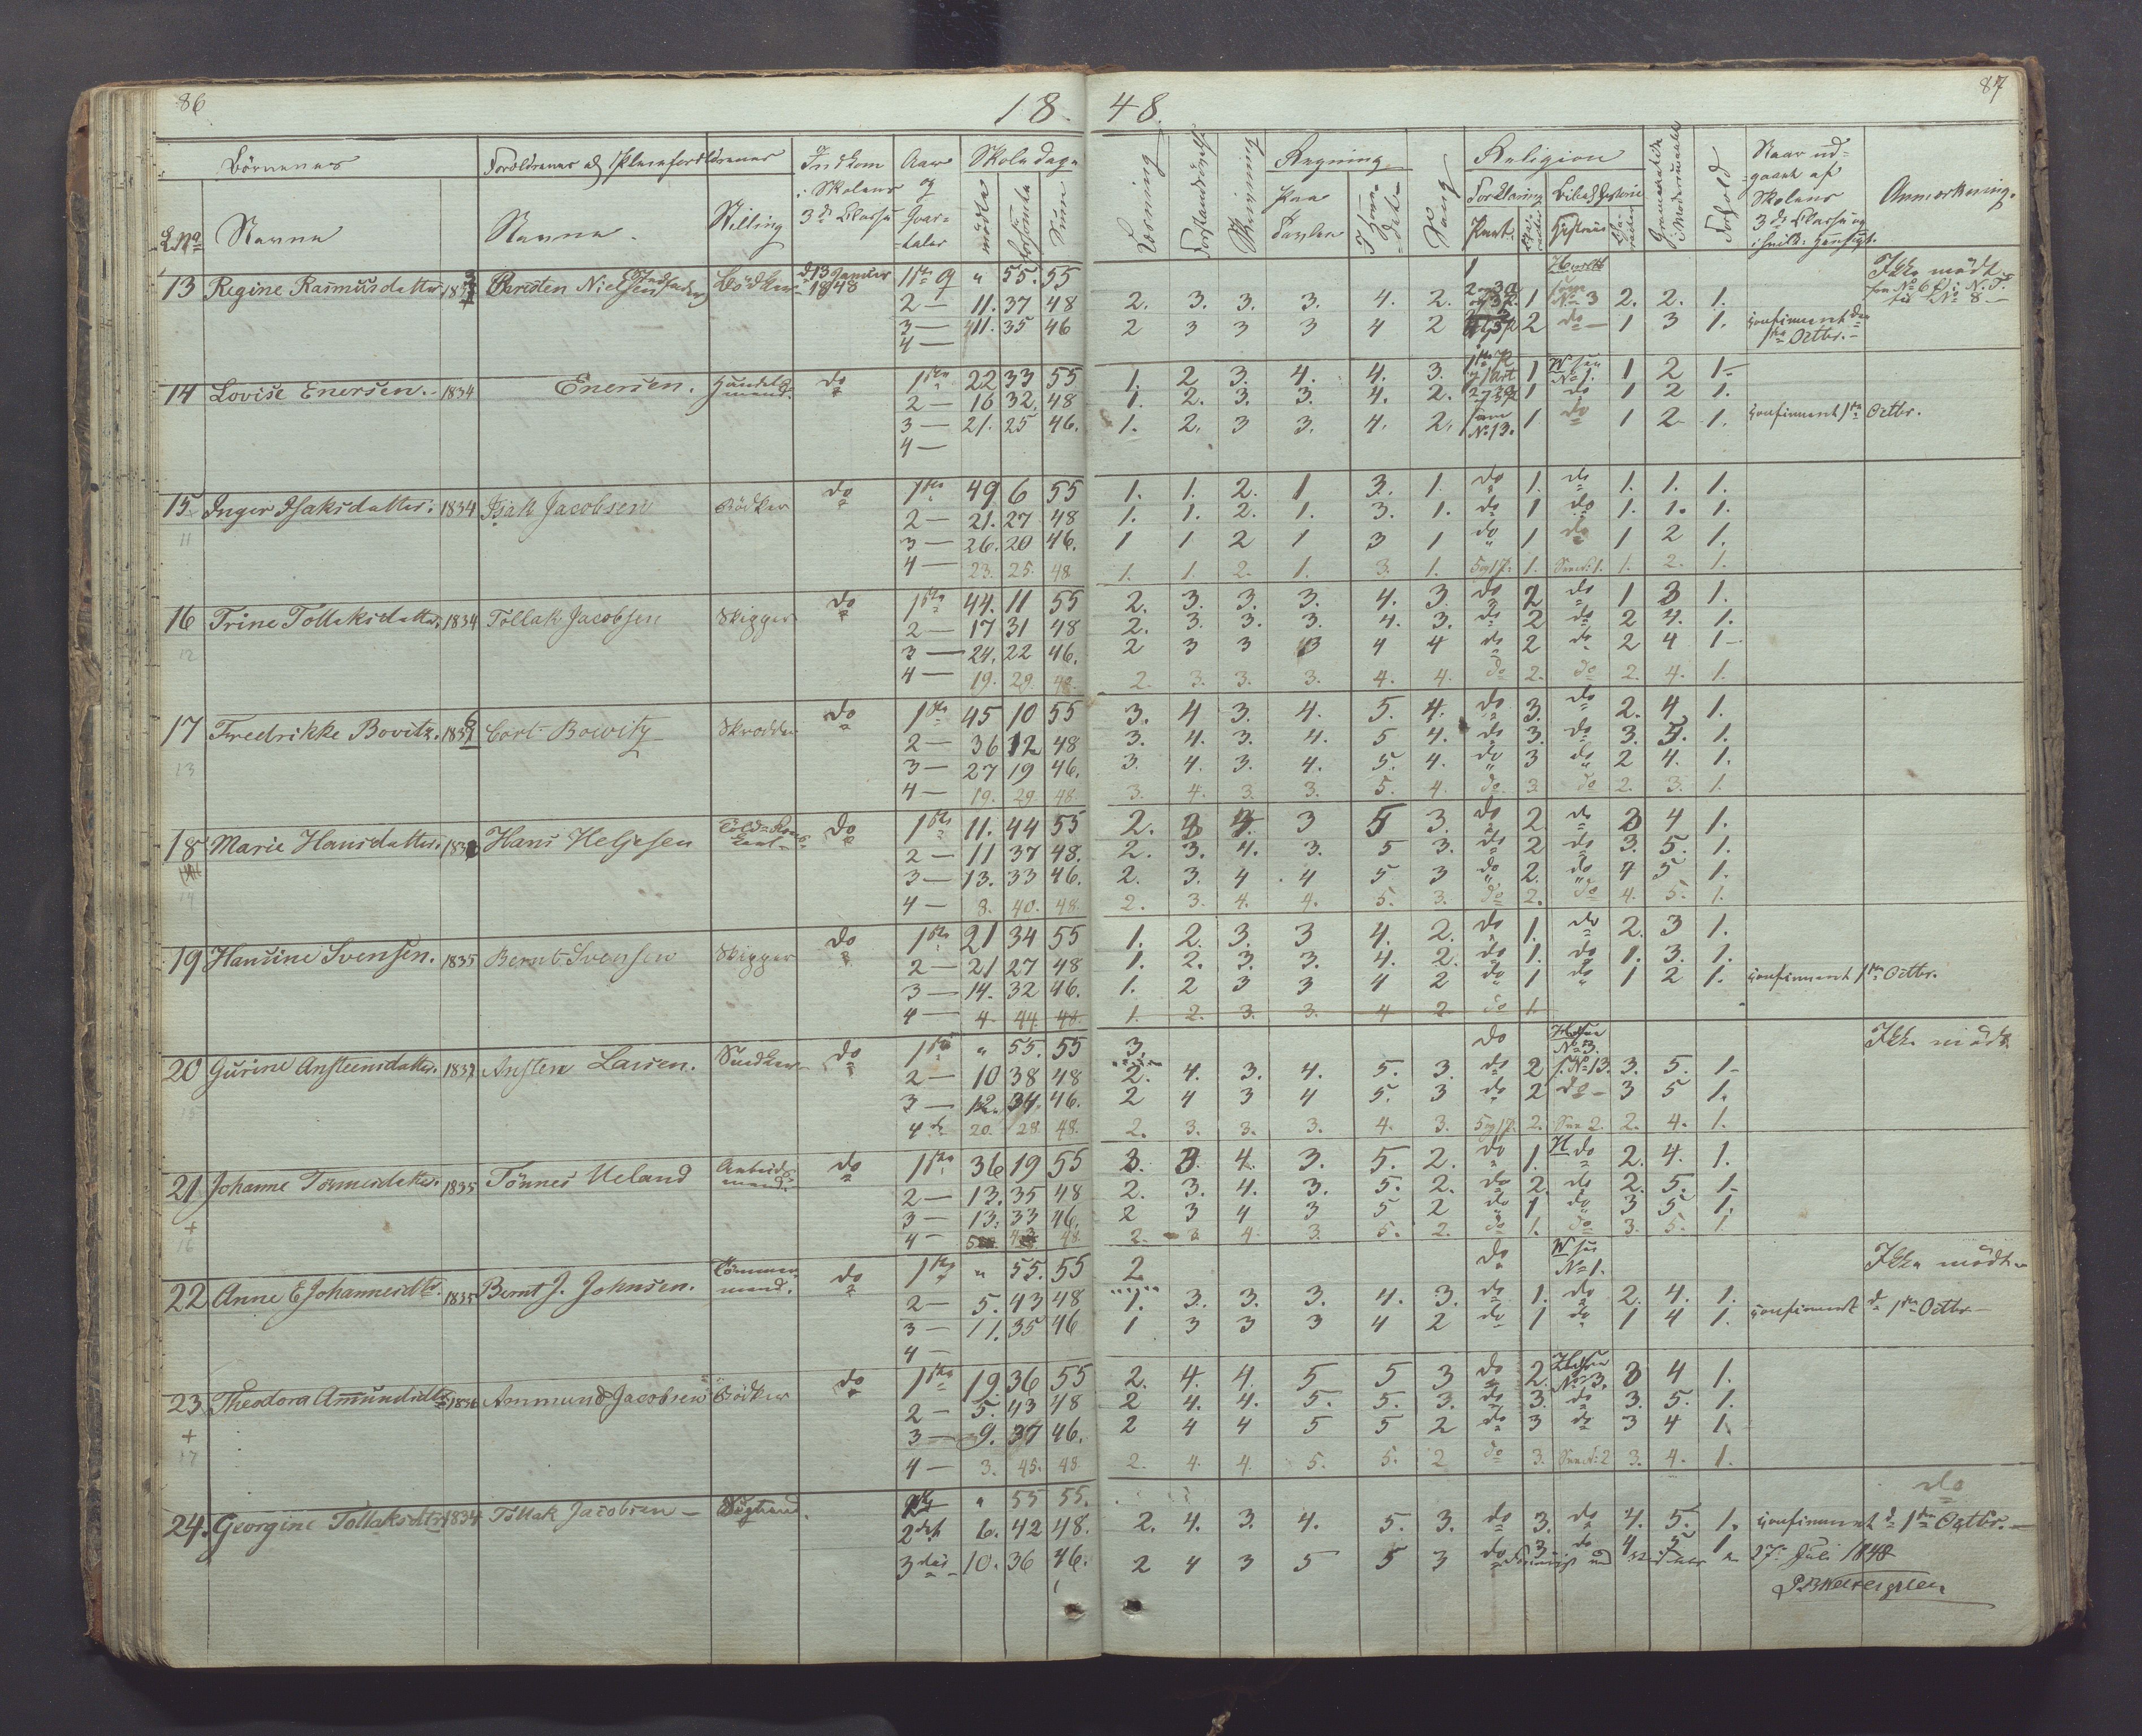 86
18
48.
87
Börnenes
Forældrenes el Pleieforældrenes
Indkom i Skolens 3die Classe
Aar og Qvartaler
Skoledage
Læsning
Forstandsøvelse
Skrivning
Regning
Sang
Religion
Forhold
Naar udgaaet af Skolens 3die Classe og i hvilk: Hensigt.
Anmærkning.
L No
Navne
Navne.
Stilling
mödte
forsömte
Sum
Paa Tavlen
I Hovedet
Forklaring
Bibelhistorie
Part
Historie
13 Regine Rasmusdatter Bersten Nielsen Bödker d. 13 Januar 1848 1ste Q " 55. 55 Ikke mödt.
2 — 11. 37 48 2. 3. 3. 3. 4. 2. 1 No 3 2. 2. 1.
3 — 11. 35 46 2 3 3 3 4 2 2 do — 1 3 1. confirmeret den 1ste Octbr. —
4 —
14 Lovise Enersen. 1834 Enersen. Handelsmand. do 1ste 22 33 55 1. 2 3. 4. 4. 3. 1 No 1. 1 2 1.
2 — 16 32. 48 1. 2. 3. 3. 4. 2. 1 do 1 2 1.
3 — 21. 25 46. 1. 2. 3 3. 4. 2. No 13. 1 do 1 2 1. confirmeret 1ste Octbr.
4 —
15 Inger Isaksdatter. 1834 Isak Jacobsen Bödker do 1ste 49 6 55 1. 1. 2. 1 3. 1. do 1. do 1. 1. 1.
11 2 — 21. 27 48 1. 1. 2. 1. 3. 1. do 1 do 1. 1. 1.
3 — 26. 20 46. 1 1 2 1 3 1 do 1 do 1 2 1.
4 — 23. 25. 48. 1. 1. 2. 1. 3. 1. 1. 1. 2. 1.
16 Trine Tollaksdatter. 1834 Tollak Jacobsen Skipper do 1ste 44. 11 55 2. 3. 3. 3. 4. 3. do 2 do 1 3 1.
12 2 — 17 31 48 2. 3. 3. 3. 4. 3. do 2 do 2 4. 1.
3 — 24. 22 46. 2 3 3 3 4 4 do 2 do 2 4 1 —
4 — 19. 29. 48. 2. 3. 3. 3. 4. 4. do 2. do 2. 4. 1.
17 Fredrikke Bovitz. Cort Bowitz Skrædder do 1ste 45 10 55 3. 4 3. 4. 5. 4. do 3. do 2. 4 1.
13 2 — 36 12 48 3. 4. 3. 4. 5 4. do 3. do 3. 5. 1.
3 — 27 19 46. 3. 4. 3. 4. 5. 4. do 3 do 2 4. 1.
4 — 19. 29. 48. 3. 4. 3. 3. 5. 4. do 3 do 2. 3. 1.
18 Marie Hansdatter. Hans Heljesen do 1ste 11. 44 55 2. 3 4. 3 5 3. do 2 do 3 4 1.
2 — 11 37 48. 2. 3. 4. 3. 5 3. do 2 do 3. 5. 1.
14 3 — 13. 33 46. 2. 3. 4 4 5 3 do 2. do 4 5 1.
4 — 8. 40. 48. 2. 3. 4. 4. 5. 3. do 2. do 4. 5. 1.
19 Hansine Svensen. 1835 Bernt Svensen Skipper do 1ste 21 34 55 1. 2. 3. 3 4. 2. do 1. do 2. 3 1.
2 — 21 27 48 1. 2. 3. 3. 4. 2. do 1. do 1. 3. 1.
3 — 14. 32 46. 1. 2 3 3 4 2 do 1 do 1 2 1. confirmeret 1ste Octbr.
4 — 4. 44. 48. 1. 2. 3. 3. 4 2 do 1.
20 Gurine Anstensdatter. Ansten Larsen. Snedker do 1ste " 55. 55 3. do No 3 Ikke mödt
2 — 10 38 48 2. 4. 3. 4. 5. 3. do 2 No 13. 3. 5. 1 —
15 3 — 12. 34. 46. 2 4 3 4 5. 3 do 2 do — 3 5 1.
4 de 20. 28. 48. 2. 3. 3. 3. 4. 3. 2. 2. 4. 1.
21 Johanne Tönnesdatter. 1835 Tönnes Ueland Arbeidsmand. do 1ste 36 19 55 3. 3. 4. 3. 5. 2. do 1. do 2. 4. 1.
+ 2 — 13. 35 48 2. 3. 4. 3. 5. 2. do 2. do 2. 5. 1 —
16 3 — 13. 33 46. 2 3 4 3 5 2 do 1 do 3 5 1.
4 — 48. 2. 3 4. 3. 5. 2. do 1. do 3. 5. 1.
22 Anne E Johannesdtr. 1835 Bernt J. Johnsen. Tömmermand. do 1ste " 55. 55 2 do No 1. Ikke mödt
2 — 5. 43 48 1. 3. 3. 3. 4. 3. do 1. do 2. 4. 1.
3 — 11. 35 46 1 3 3 3 4 2 do 1 do 1 4 1. confirmeret d 1ste Octbr —
4 —
23 Theodora Amundsdtr 1836 Ammund Jacobsen Bödker do 1ste 19. 36 55 2. 4. 4. 5 5 3 do 2. No 3. 3 4 1.
+ 2 — 5. 43 48 2 4. 4. 5. 5. 3. do 3. do 3. 5. 1.
17 3 — 9. 37 46. 2 4 4 5 5 2 do 3 do 3 4 1.
4 — 3. 45. 48 2. 4. 4. 5. 5. 2 do 3. 3. 4. 1.
24. Georgine Tollaksdtr 1834 Tollak Jacobsen — " 55 55. do
2det 6. 42 48. 2. 4. 3. 4. 5. 3. do 3. do 4. 5. 1. confirmeret d 1ste Octbr. —
3die 10. 36 46. 2 4 3 5 5 3 do 3 do 4 5 1
27 Juli 1848